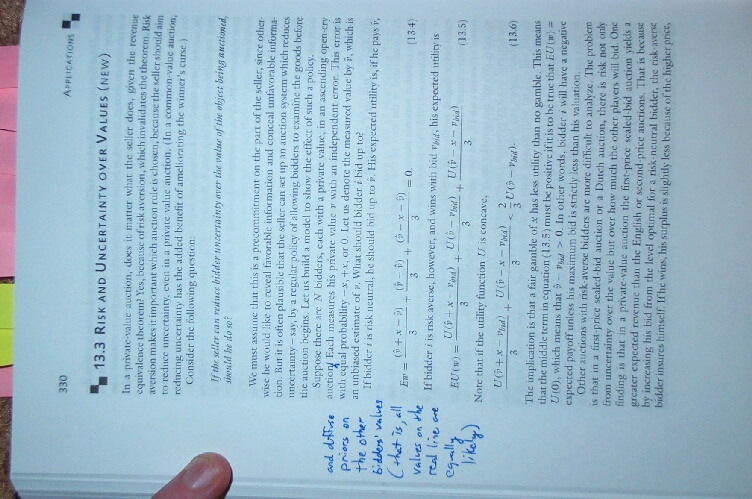 330
APPLICATIONS
13.3 RISK AND UNCERTAINTY OVER VALUES (NEW)
In a private-value auction, does it matter what the seller does, given the revenue
equivalence theorem? Yes, because of risk aversion, which invalidates the theorem. Risk
aversion makes it important which auction rule is chosen, because the seller should aim
to reduce uncertainty, even in a private value auction. (In a common-value auction,
reducing uncertainty has the added benefit of ameliorating the winner's curse.)
Consider the following question:
If the seller can reduce bidder uncertainty over the value of the object being auctioned,
should he do so?
We must assume that this is a precommitment on the part of the seller, since other-
wise he would like to reveal favorable information and conceal unfavorable informa-
tion. But it is often plausible that the seller can set up an auction system which reduces
uncertainty – say, by a regular policy of allowing bidders to examine the goods before
the auction begins. Let us build a model to show the effect of such a policy.
Suppose there are N bidders, each with a private value, in an ascending open-cry
auction. Each measures his private value v with an independent error. This error is
with equal probability −x, +x, or 0. Let us denote the measured value by v̂, which is
an unbiased estimate of v. What should bidder i bid up to?
If bidder i is risk neutral, he should bid up to v̂. His expected utility is, if he pays v̂,
Eπ = (v̂ + x − v̂)/3 + (v̂ − v̂)/3 + (v̂ − x − v̂)/3 = 0. (13.4)
If bidder i is risk averse, however, and wins with bid v_bid, his expected utility is
EU(π) = U(v̂ + x − v_bid)/3 + U(v̂ − v_bid)/3 + U(v̂ − x − v_bid)/3 (13.5)
Note that if the utility function U is concave,
U(v̂ + x − v_bid)/3 + U(v̂ − x − v_bid)/3 < 2/3 U(v̂ − v_bid). (13.6)
The implication is that a fair gamble of x has less utility than no gamble. This means
that the middle term in equation (13.5) must be positive if it is to be true that EU(π) =
U(0), which means that v̂ − v_bid 0. In other words, bidder i will have a negative
expected payoff unless his maximum bid is strictly less than his valuation.
Other auctions with risk-averse bidders are more difficult to analyze. The problem
is that in a first-price sealed-bid auction or a Dutch auction, there is risk not only
from uncertainty over the value but over how much the other players will bid. One
finding is that in a private-value auction the first-price sealed-bid auction yields a
greater expected revenue than the English or second-price auctions. That is because
by increasing his bid from the level optimal for a risk-neutral bidder, the risk-averse
bidder insures himself. If he wins, his surplus is slightly less because of the higher price,
and diffuse
priors on
the other
bidders' values
(that is, all
values on the
real line are
equally
likely)